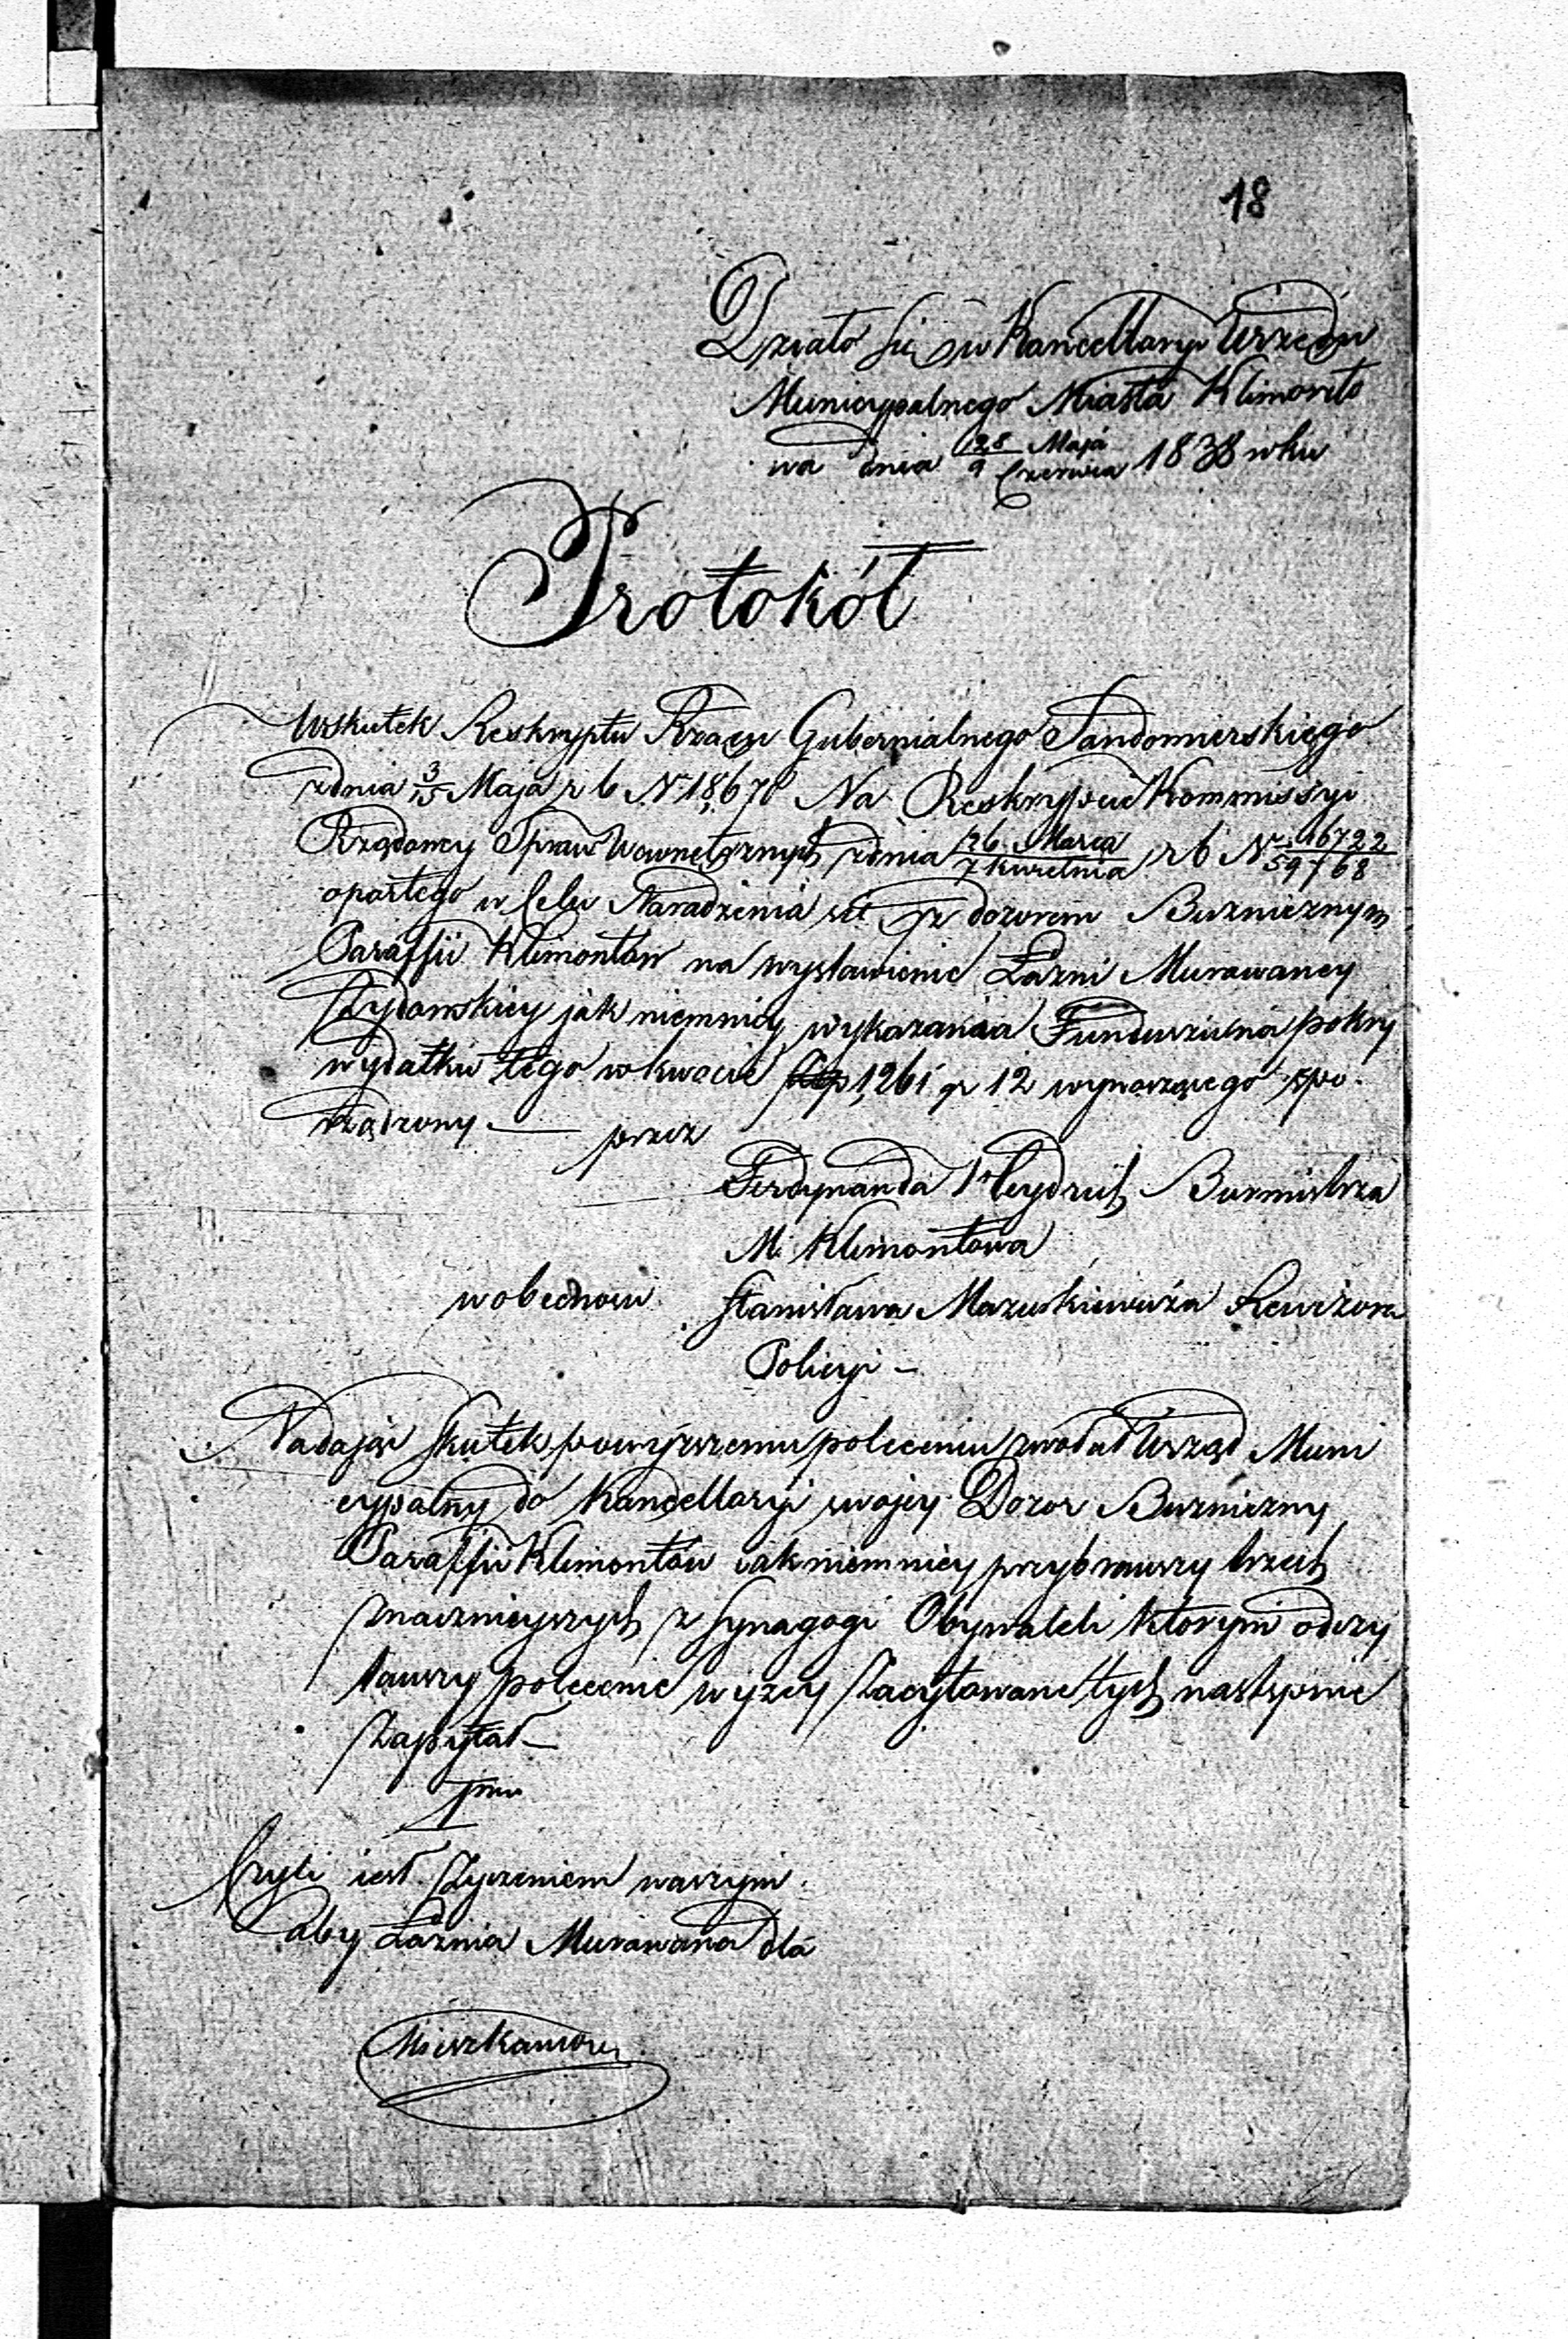 18
Działo się w Kancellaryi Urzędu
Municypalnego Miasta Klimonto
wa dnia 28 Maja / 9 Czerwca 1838 roku
Protokół
Wskutek Reskryptu Rządu Gubernialnego Sandomierskiego
z dnia 3/15 Maja r b N 18,670 Na Reskrypcie Kommissyi
Rządowey Spraw Wewnętrznych z dnia 26 Marca / 7 Kwietnia r b N 16722 / 59768
opartego w Celu Naradzenia się z dozorem Bużnicznym
Paraffii Klimontów na wystawienie Łazni Murowaney
Żydowskiey jak niemniey wykazania Funduszu na pokry
wydatku tego w kwocie 1,261 gr 12 wynoszącego spo
rządzony — przez
Ferdynanda Heydrich Burmistrza
M. Klimontowa
w obecnosci Stanisława Mazurkiewicza Rewizora
Policyi —
Nadając skutek powyższemu poleceniu zwołał Urząd Muni
cypalny do Kancellaryi swojey Dozor Bużniczny
Paraffii Klimontów iak niemniey przybrawszy trzech
znacznieyszych z Synagogi Obywateli którym odczy
tawszy polecenie wyżey zacytowane tych następnie
zapytał —
1mo
Czyli iest Życzeniem waszym
aby Łaznia Murowana dla
Mieszkancow